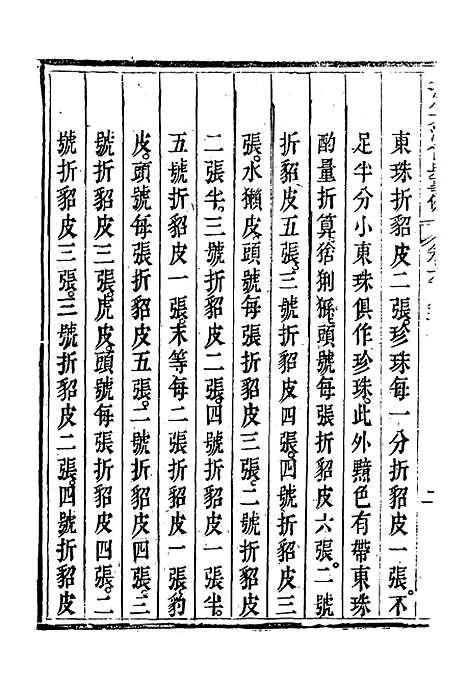 東珠折貂皮二張。珍珠每一分折貂皮一張。不
足半分小東珠俱作珍珠。此外黯色有帶東珠
酌量折算猞猁猻。頭號每張折貂皮六張。二號
折貂皮五張。三號折貂皮四張。四號折貂皮三
張。水獺皮。頭號每張折貂皮三張。二號折貂皮
二張半。三號折貂皮二張。四號折貂皮一張半。
五號折貂皮一張。末等每二張折貂皮一張。豹
皮。頭號每張折貂皮五張。二號折貂皮四張。三
號折貂皮三張。虎皮。頭號每張折貂皮四張。二
號折貂皮三張。三號折貂皮二張。四號折貂皮
二